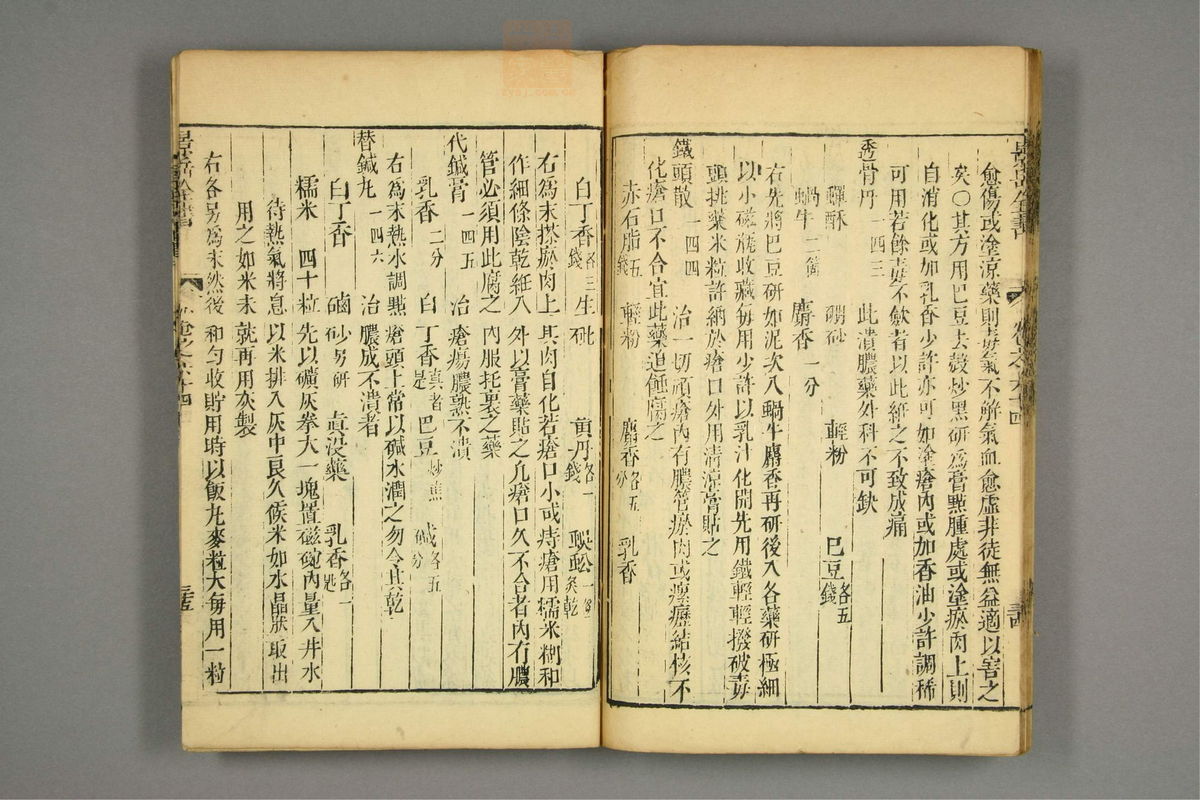 愈傷或塗涼藥則毒氣不解氣血愈虛非徒無益適以害之
矣〇其方用巴豆去殼炒黑研為膏點腫處或塗瘀肉上則
自消化或加乳香少許亦可如塗瘡內或加香油少許調稀
可用若餘毒不斂者以此紝之不致成痛
透骨丹 一四三 此潰膿藥外科不可缺
蟬酥 硼砂 輕粉 巴豆各五錢
蝸牛二箇 麝香一分
右先將巴豆研如泥次入蝸牛麝香再研後入各藥研極細
以小磁瓶收藏每用少許以乳汁化開先用鐵輕輕撥破毒
頭挑藥米粒許納於瘡口外用清涼膏貼之
鐵頭散 一四四 治一切頑瘡內有膿管瘀肉或瘰癧結核不
化瘡口不合宜此藥追蝕腐之
赤石脂五錢 輕粉 麝香各五分 乳香
白丁香各三錢 生砒 黃丹各一錢 蜈蚣一條炙乾
右為末搽瘀肉上其肉自化若瘡口小或痔瘡用糯米糊和
作細條陰乾紝入外以膏藥貼之凢瘡口久不合者內有膿
管必須用此腐之內服托裏之藥
代鍼膏 一四五 治瘡瘍膿熟不潰
乳香二分 白丁香真者是 巴豆炒焦 碱各五分
右為末熱水調點瘡頭上常以碱水潤之勿令其乾
替鍼丸 一四六 治膿成不潰者
白丁香 硇砂另研 真沒藥 乳香各一匙
糯米四十粒 先以礦灰拳大一塊置磁碗內量入井水
待熱氣將息以米排入灰中良久候米如水晶狀取出
用之如米未就再用灰製
右各另為末然後和勻收貯用時以飯丸麥粒大每用一粒
三五